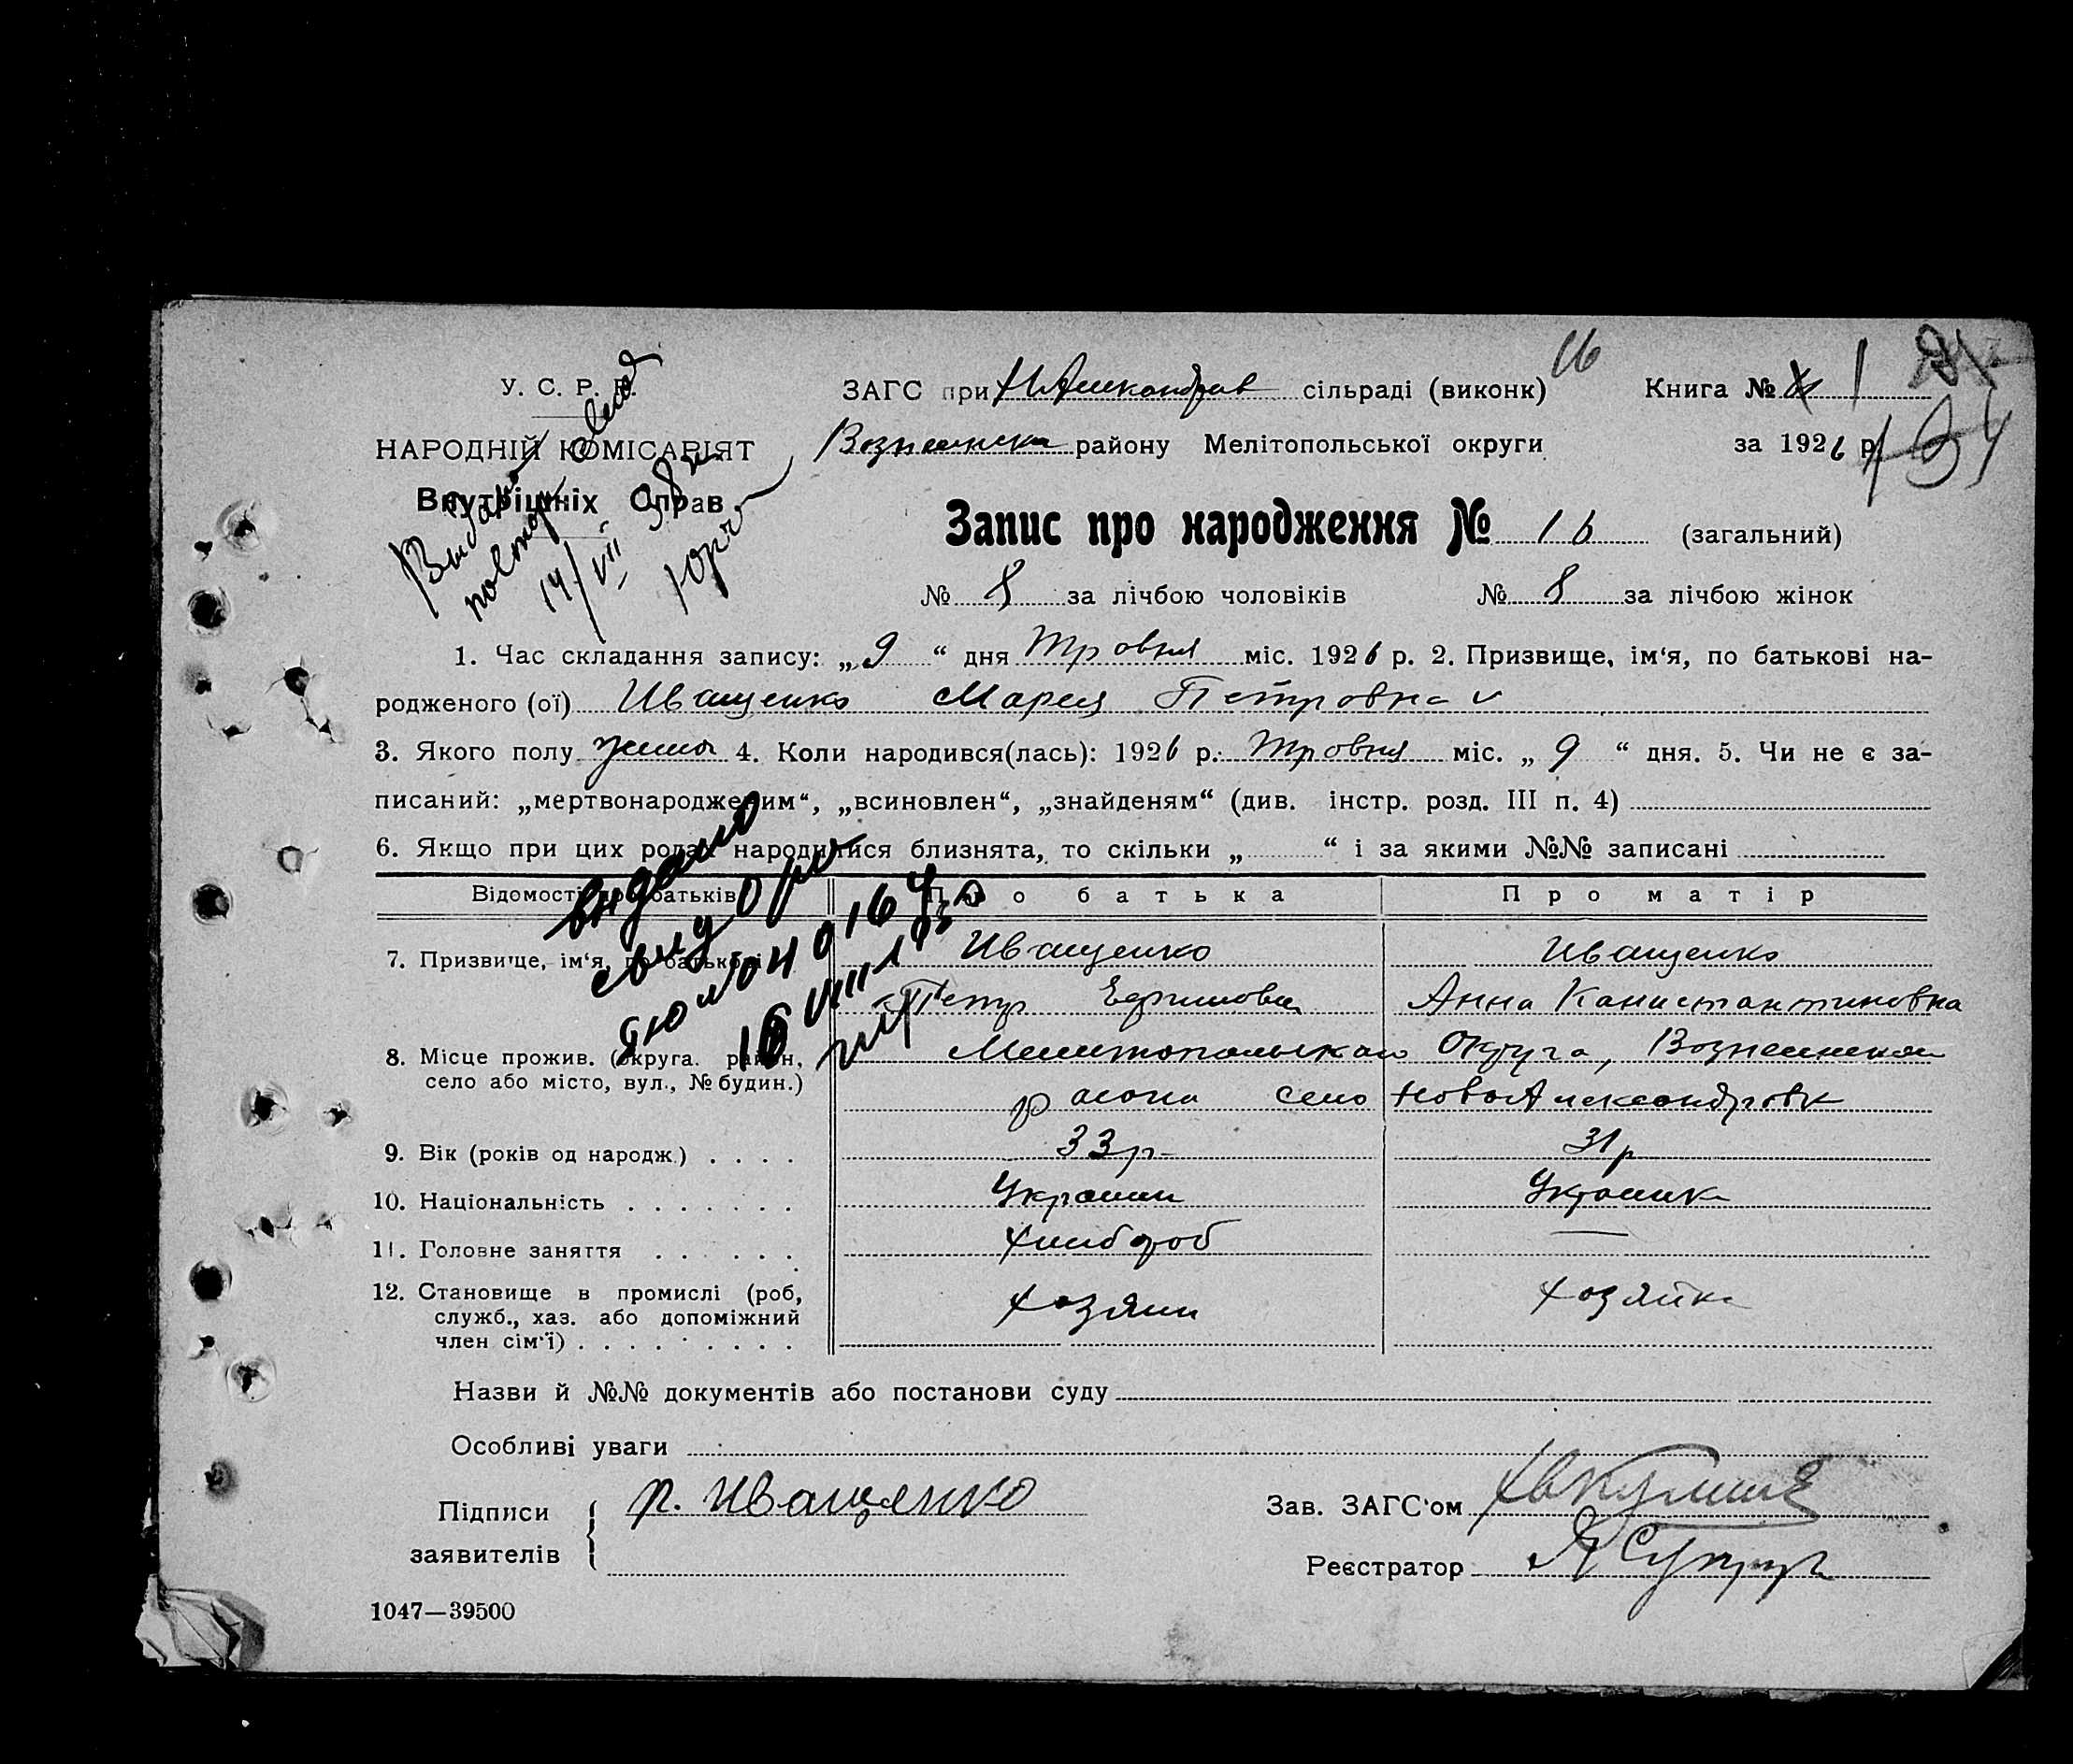 16
У. С. Р. Р. ЗАГС при Н Александров сільраді (виконк) Книга № 1
НАРОДНІЙ КОМІСАРІЯТ Вознесенска району Мелітопольської округи за 1926 р. 34
Внутрішніх Справ
Видано
повторн свид
14/VII 38
Запис про народження № 16 (загальний)
№ 8 за лічбою чоловіків № 8 за лічбою жінок
1. Час складання запису: „9“ дня Тровня міс. 1926 р. 2. Призвище, ім‘я, по батькові на-
родженого (ої) Иващенко Мария Петровна
3. Якого полу жиноч 4. Коли народився(лась): 1926 р. Тровня міс. „9“ дня. 5. Чи не є за-
писаний: „мертвонародженим“, „всиновлен“, „знайденям“ (див. інстр. розд. III п. 4)
6. Якщо при цих родах народилися близнята, то скільки „ “ і за якими №№ записані
видано
свид
Відомості про батьків Про батька Про матір
7. Призвище, ім‘я, по батькові Иващенко Иващенко
Петр Ефимович Анна Канистантиновна
8. Місце прожив. (округа. район, Мелитопольскаго Округа, Вознесенскаго
село або місто, вул., № будин.) раѳона село НовоАлександровк
9. Вік (років од народж.) 33р 31р
10. Національність Украинин Украинка
11. Головне заняття Хлибороб —
12. Становище в промислі (роб, Хозяин Хозяйка
служб., хаз. або допоміжний
член сім‘ї)
Назви й №№ документів або постанови суду
Особливі уваги
Підписи р. Иващенко Зав. ЗАГС‘ом
заявителів Реєстратор
1047—39500